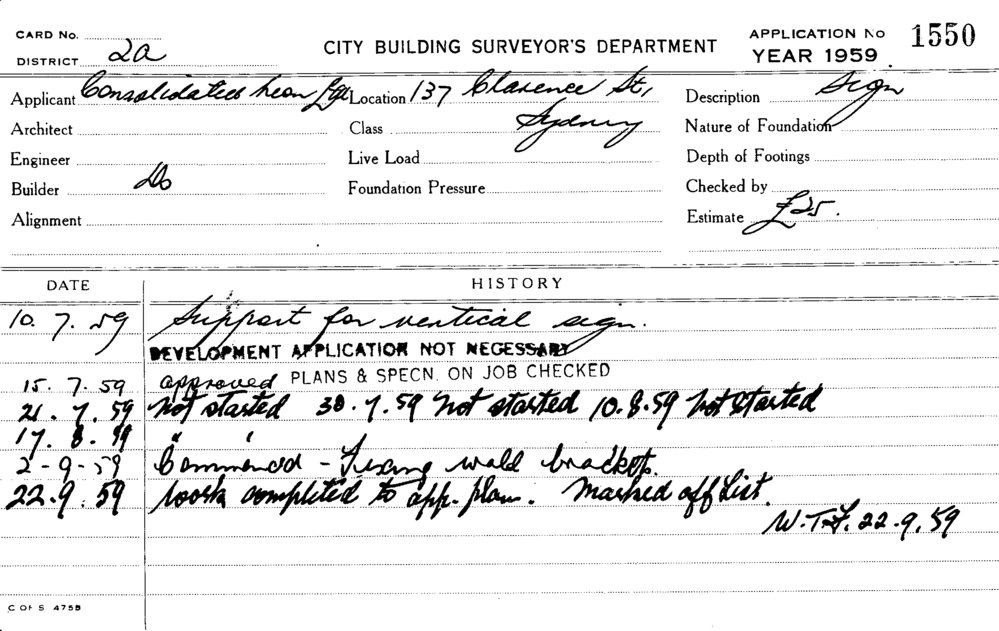 CARD No.
DISTRICT 2a
CITY BUILDING SURVEYOR'S DEPARTMENT
APPLICATION No 1550
YEAR 1959
Applicant Consolidated Neon Location 137 Clarence St, Description Sign
Architect Class Sydney Nature of Foundation
Engineer Live Load Depth of Footings
Builder Do Foundation Pressure Checked by
Alignment Estimate £25.
DATE HISTORY
10.7.59 Support for vertical sign.
DEVELOPMENT APPLICATION NOT NECESSARY
15.7.59 approved PLANS & SPECN. ON JOB CHECKED
21.7.59 Not started 30.7.59 Not started 10.8.59 Not Started
17.8.59 " "
2-9-59 Commenced - Fixing wall brackets.
22.9.59 Work completed to app. plan. Marked off List.
W.T.F. 22.9.59
C OF S 475B